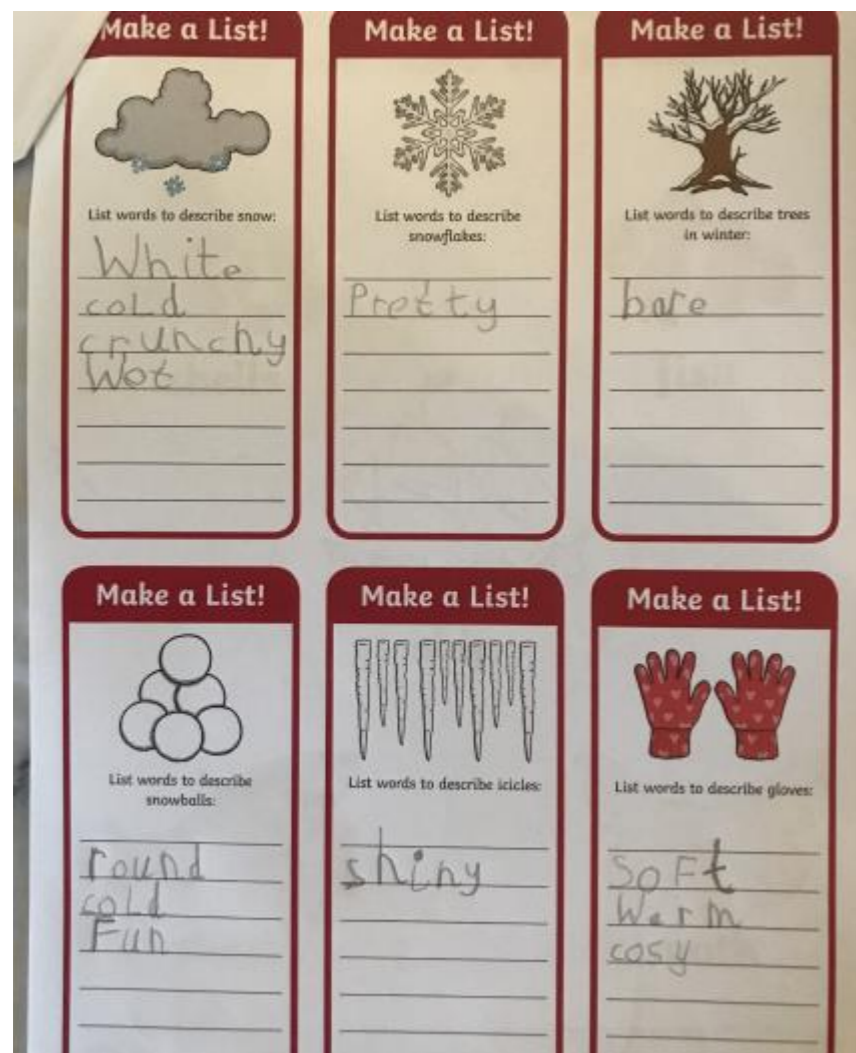 Make a List!
List words to describe snow:
White
coLd
crunchy
Wet
Make a List!
List words to describe
snowflakes:
Pretty
Make a List!
List words to describe trees
in winter:
bare
Make a List!
List words to describe
snowballs:
round
coLd
Fun
Make a List!
List words to describe icicles:
shiny
Make a List!
List words to describe gloves:
SoFt
Warm
cosy